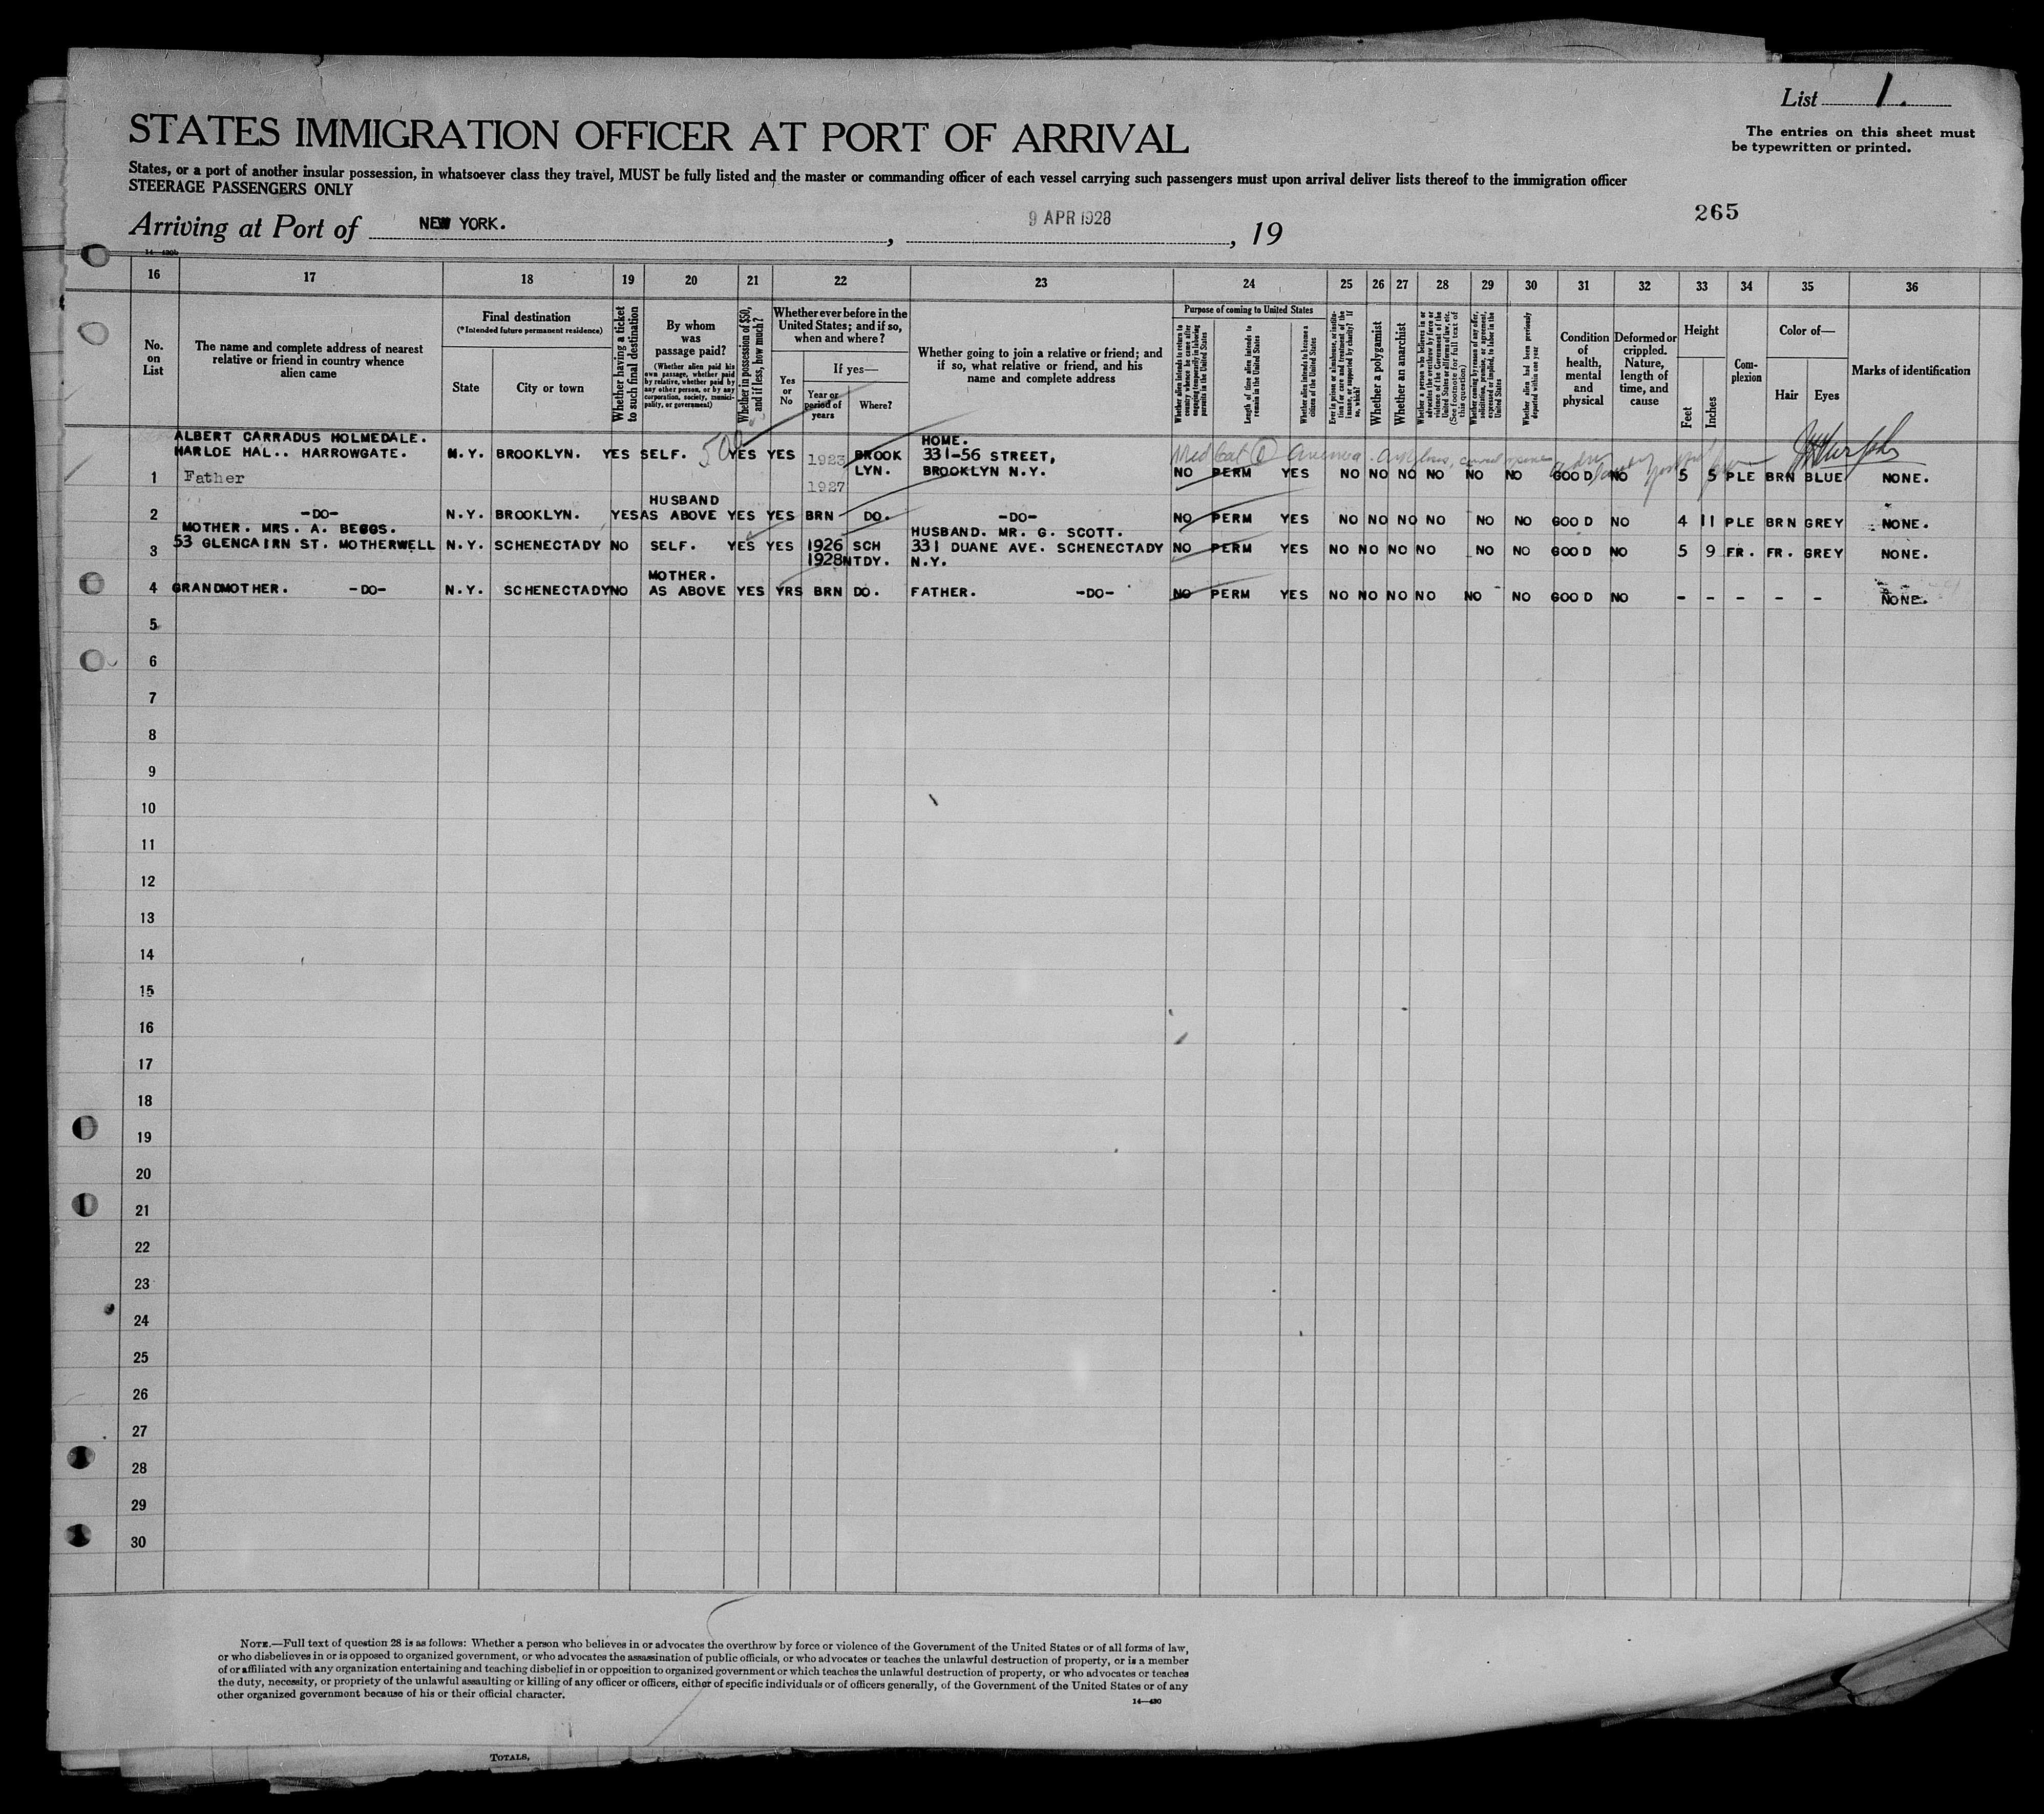 List 1.
STATES IMMIGRATION OFFICER AT PORT OF ARRIVAL
The entries on this sheet must
be typewritten or printed.
States, or a port of another insular possession, in whatsoever class they travel, MUST be fully listed and the master or commanding officer of each vessel carrying such passengers must upon arrival deliver lists thereof to the immigration officer
STEERAGE PASSENGERS ONLY
265
Arriving at Port of NEW YORK. , 9 APR 1928 , 19
14—430b
16 17 18 19 20 21 22 23 24 25 26 27 28 29 30 31 32 33 34 35 36
No. on List
The name and complete address of nearest relative or friend in country whence alien came
Final destination
(*Intended future permanent residence)
State
City or town
Whether having a ticket to such final destination
By whom was passage paid?
(Whether alien paid his own passage, whether paid by relative, whether paid by any other person, or by any corporation, society, municipality, or government)
Whether in possession of $50, and if less, how much?
Whether ever before in the United States; and if so, when and where?
Yes or No
If yes—
Year or period of years
Where?
Whether going to join a relative or friend; and if so, what relative or friend, and his name and complete address
Purpose of coming to United States
Whether alien intends to return to country whence he came after engaging temporarily in laboring pursuits in the United States
Length of time alien intends to remain in the United States
Whether alien intends to become a citizen of the United States
Ever in prison or almshouse, or institution for care and treatment of the insane, or supported by charity? If so, which?
Whether a polygamist
Whether an anarchist
Whether a person who believes in or advocates the overthrow by force or violence of the Government of the United States or all forms of law, etc. (See footnote for full text of this question)
Whether coming by reason of any offer, solicitation, promise, or agreement, expressed or implied, to labor in the United States
Whether alien had been previously deported within one year
Condition of health, mental and physical
Deformed or crippled. Nature, length of time, and cause
Height
Feet
Inches
Complexion
Color of—
Hair
Eyes
Marks of identification
ALBERT CARRADUS HOLMEDALE. HOME.
HARLOE HAL.. HARROWGATE. N.Y. BROOKLYN. YES SELF. 50 YES YES 1923 BROOK 331-56 STREET, Med Cert
1 Father 1927 LYN. BROOKLYN N.Y. NO PERM YES NO NO NO NO NO NO GOOD NO 5 5 PLE BRN BLUE NONE.
HUSBAND
2 -DO- N.Y. BROOKLYN. YES AS ABOVE YES YES BRN DO. -DO- NO PERM YES NO NO NO NO NO NO GOOD NO 4 11 PLE BRN GREY NONE.
MOTHER. MRS. A. BEGGS. HUSBAND. MR. G. SCOTT.
3 53 GLENCAIRN ST. MOTHERWELL N.Y. SCHENECTADY NO SELF. YES YES 1926 SCH 331 DUANE AVE. SCHENECTADY NO PERM YES NO NO NO NO NO NO GOOD NO 5 9 FR. FR. GREY NONE.
1928 NTDY. N.Y.
MOTHER.
4 GRANDMOTHER. -DO- N.Y. SCHENECTADY NO AS ABOVE YES YRS BRN DO. FATHER. -DO- NO PERM YES NO NO NO NO NO NO GOOD NO - - - - - NONE.
5
6
7
8
9
10
11
12
13
14
15
16
17
18
19
20
21
22
23
24
25
26
27
28
29
30
NOTE.—Full text of question 28 is as follows: Whether a person who believes in or advocates the overthrow by force or violence of the Government of the United States or of all forms of law,
or who disbelieves in or is opposed to organized government, or who advocates the assassination of public officials, or who advocates or teaches the unlawful destruction of property, or is a member
of or affiliated with any organization entertaining and teaching disbelief in or opposition to organized government or which teaches the unlawful destruction of property, or who advocates or teaches
the duty, necessity, or propriety of the unlawful assaulting or killing of any officer or officers, either of specific individuals or of officers generally, of the Government of the United States or of any
other organized government because of his or their official character.
14—430
TOTALS,